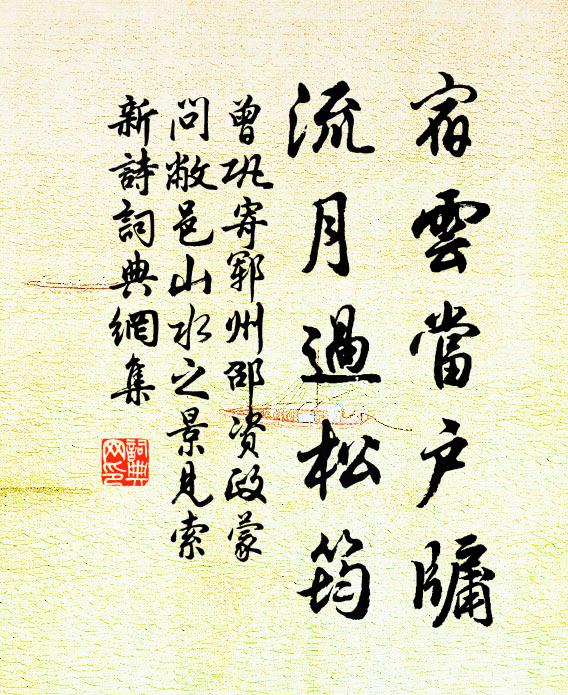 宿雲當戶牖
流月過松筠
曾鞏寄鄆州邵資政蒙
問敝邑山水之景見索
新詩詞典網集
詞典网印